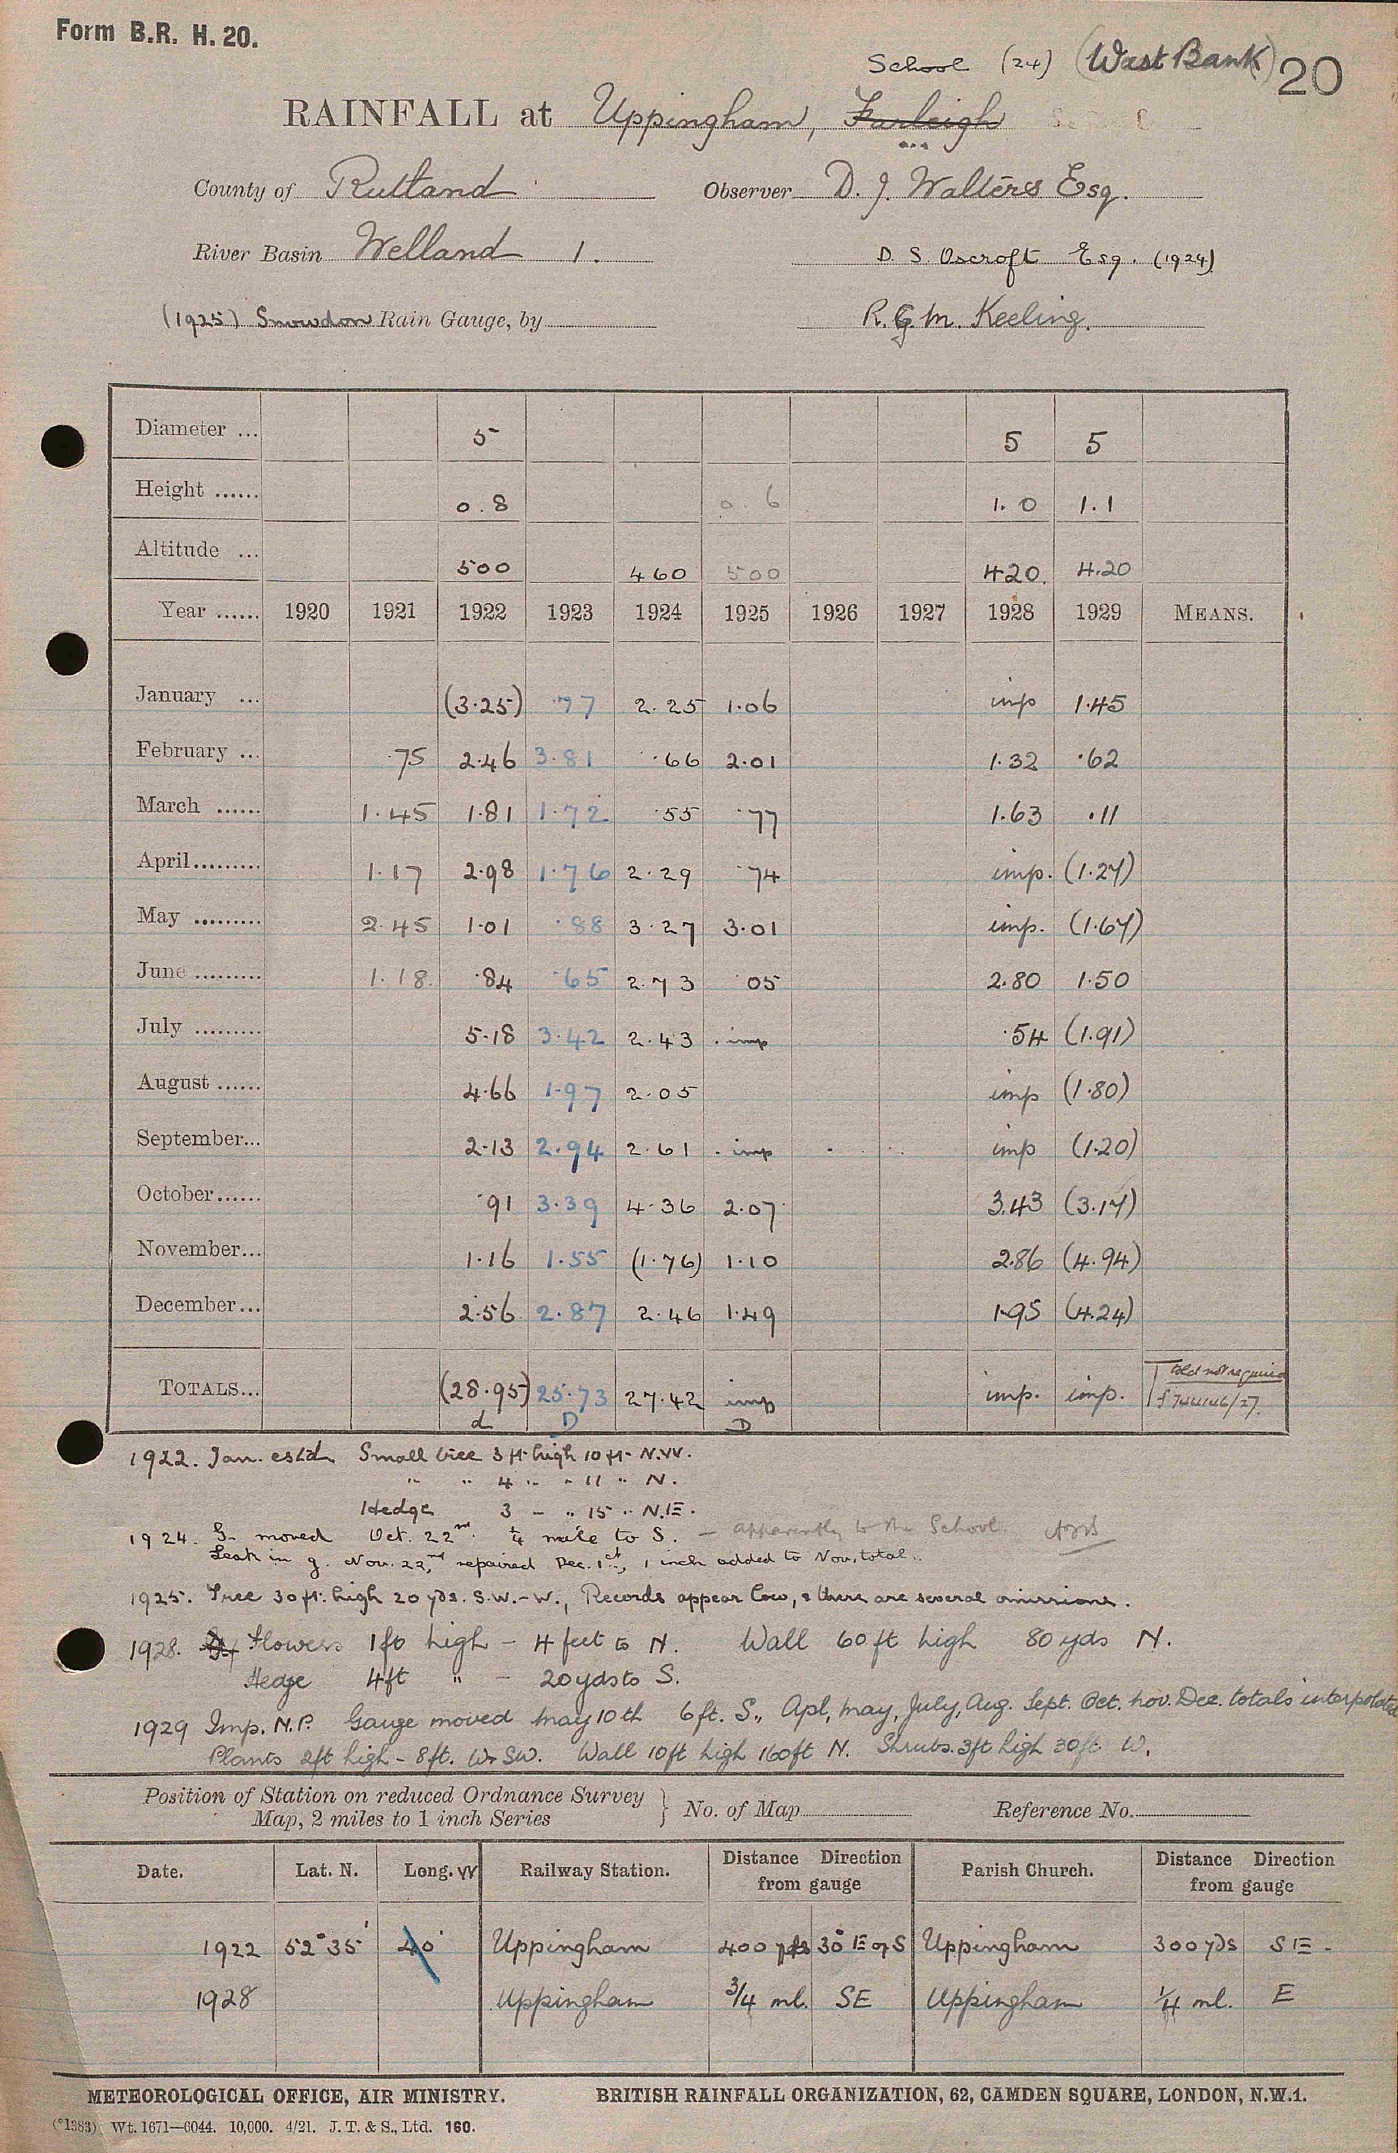 Form B.R. H. 20.
School (24) (West Bank) 20
RAINFALL at Uppingham, Farleigh
County of Rutland Observer D. J. Walters Esq.
River Basin Welland 1. D. S. Oscroft Esq. (1924)
(1925) Snowdon Rain Gauge, by R. G. M. Keeling.
Diameter ... 5 5 5
Height ...... 0.8 0.6 1.0 1.1
Altitude ... 500 460 500 420. 420
Year ...... 1920 1921 1922 1923 1924 1925 1926 1927 1928 1929 MEANS.
January ... (3.25) .77 2.25 1.06 imp 1.45
February ... .75 2.46 3.81 .66 2.01 1.32 .62
March ...... 1.45 1.81 1.72 .55 .77 1.63 .11
April......... 1.17 2.98 1.76 2.29 .74 imp. (1.27)
May ......... 2.45 1.01 .88 3.27 3.01 imp. (1.67)
June ......... 1.18. .84 .65 2.73 .05 2.80 1.50
July ......... 5.18 3.42 2.43 . imp .54 (1.91)
August ...... 4.66 1.97 2.05 imp (1.80)
September... 2.13 2.94 2.61 . imp imp (1.20)
October...... .91 3.39 4.36 2.07 3.43 (3.17)
November... 1.16 1.55 (1.76) 1.10 2.86 (4.94)
December... 2.56 2.87 2.46 1.49 1.95 (4.24)
TOTALS... (28.95) 25.73 27.42 imp imp. imp. not required
d D D
1922. Jan. estd. Small tree 3 ft. high 10 ft. N.W.
" " 4 " " 11 " N.
Hedge 3 - " 15 " N.E.
1924. G. moved Oct. 22nd. ¼ mile to S. - apparently to the School.
Leak in g. Nov. 22nd, repaired Dec. 1st, 1 inch added to Nov. total.
1925. Tree 30 ft. high 20 yds. S.W.-W., Records appear low, & there are several omissions.
1928. Flowers 1 ft high - 4 feet to N. Wall 60 ft high 80 yds N.
Hedge 4ft " - 20 yds to S.
1929 Imp. N.P. Gauge moved May 10th 6ft. S., Apl, May, July, Aug. Sept. Oct. Nov. Dec. totals interpolated
Plants 2ft high - 8ft. W-SW. Wall 10ft high 160ft N. Shrubs. 3ft high 30ft W.
Position of Station on reduced Ordnance Survey
Map, 2 miles to 1 inch Series } No. of Map Reference No.
Date. Lat. N. Long. W Railway Station. Distance Direction from gauge Parish Church. Distance Direction from gauge
1922 52° 35' 40' Uppingham 400 yds 30° E of S Uppingham 300 yds S E -
1928 Uppingham ¾ ml. SE Uppingham ¼ ml. E
METEOROLOGICAL OFFICE, AIR MINISTRY. BRITISH RAINFALL ORGANIZATION, 62, CAMDEN SQUARE, LONDON, N.W.1.
(*1383) Wt. 1671—6044. 10,000. 4/21. J. T. & S., Ltd. 160.